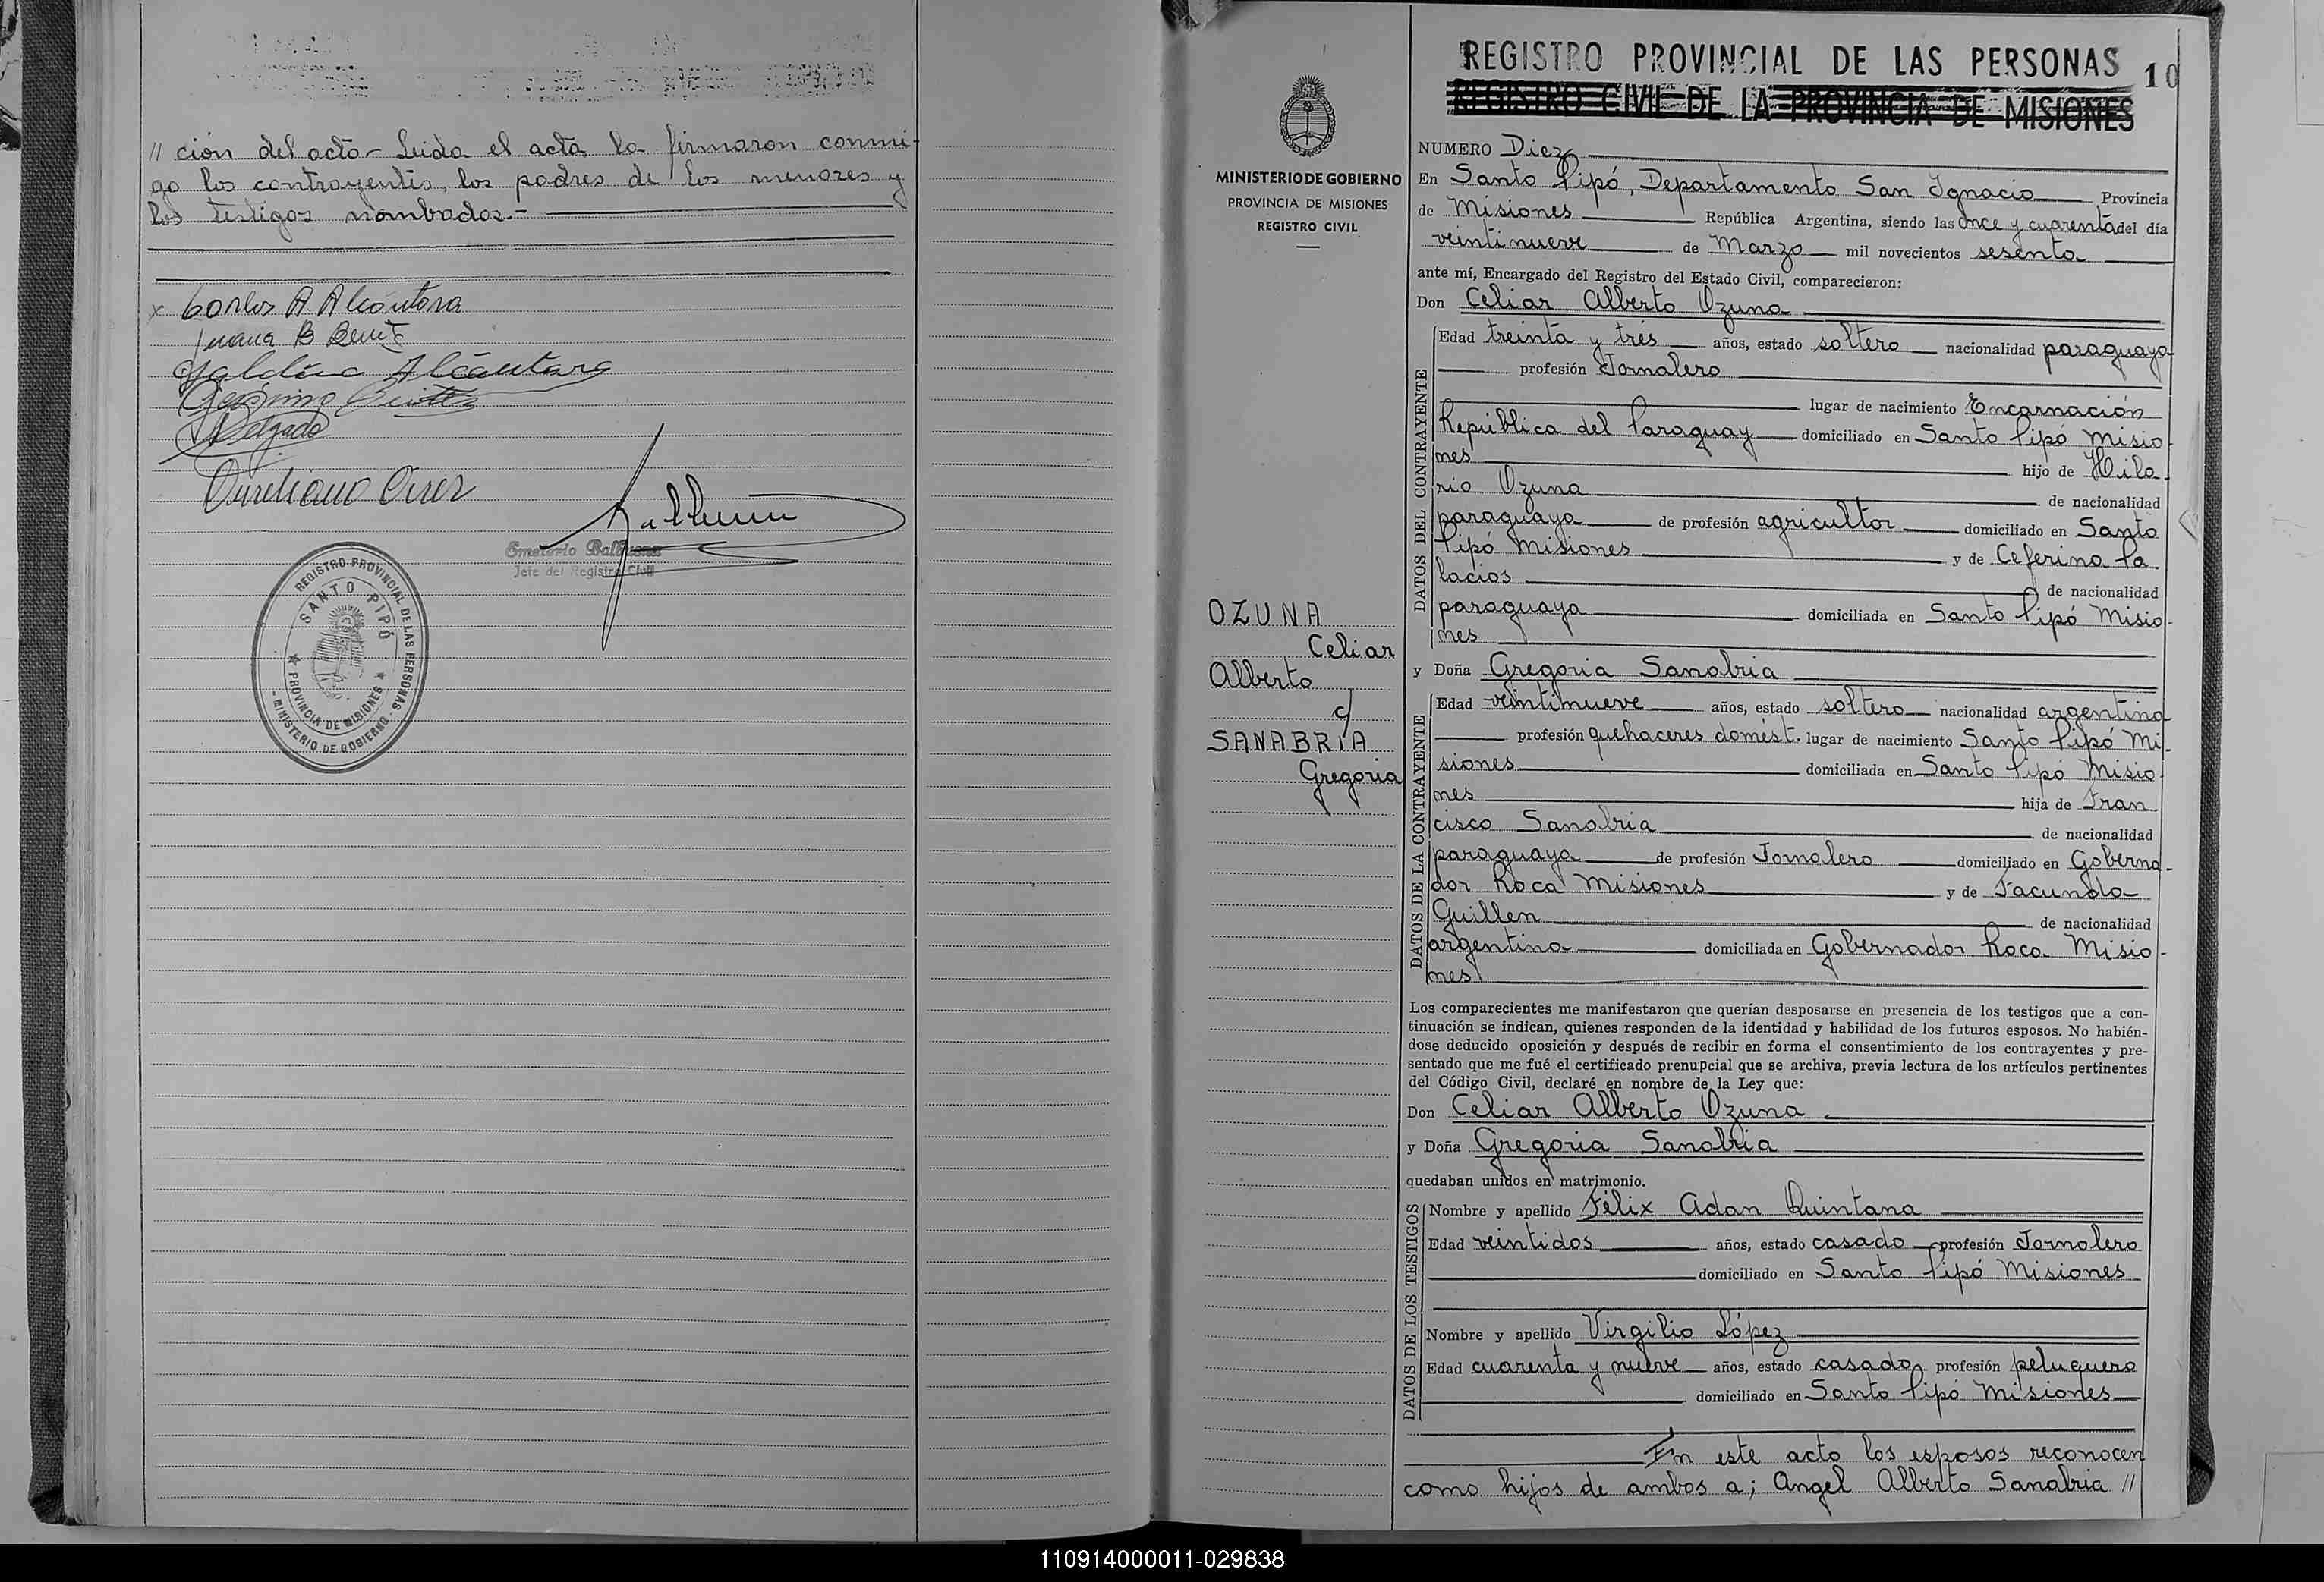 // ción del acto - Leida el acta la firmaron conmi-
go los contrayentes, los padres de los menores y
los testigos nombados.-
x Carlos A Alcantara
Juana B Benit
Alcántara
Delgado
Aureliano
Emeterio Balbuena
Jefe del Registro Civil
REGISTRO PROVINCIAL DE LAS PERSONAS
SANTO PIPÓ
PROVINCIA DE MISIONES
- MINISTERIO DE GOBIERNO -
REGISTRO PROVINCIAL DE LAS PERSONAS
10
REGISTRO CIVIL DE LA PROVINCIA DE MISIONES
MINISTERIO DE GOBIERNO
PROVINCIA DE MISIONES
REGISTRO CIVIL
OZUNA
Celiar
Alberto
c/
SANABRIA
Gregoria
NUMERO Diez
En Santo Pipó, Departamento San Ignacio Provincia
de Misiones República Argentina, siendo las Once y cuarenta del día
veintinueve de Marzo mil novecientos sesenta
ante mí, Encargado del Registro del Estado Civil, comparecieron:
Don Celiar Alberto Ozuna
DATOS DEL CONTRAYENTE
Edad treinta y trés años, estado soltero nacionalidad paraguaya
profesión Jornalero
lugar de nacimiento Encarnación
República del Paraguay domiciliado en Santo Pipó Misio-
nes hijo de Hila-
rio Ozuna de nacionalidad
paraguaya de profesión agricultor domiciliado en Santo
Pipó Misiones y de Ceferina Pa-
lacios de nacionalidad
paraguaya domiciliada en Santo Pipó Misio-
nes
y Doña Gregoria Sanabria
DATOS DE LA CONTRAYENTE
Edad veintinueve años, estado soltera nacionalidad argentina
profesión quehaceres domést. lugar de nacimiento Santo Pipó Mi-
siones domiciliada en Santo Pipó Misio-
nes hija de Fran-
cisco Sanabria de nacionalidad
paraguaya de profesión Jornalero domiciliado en Goberna-
dor Roca Misiones y de Facunda
Guillen de nacionalidad
argentina domiciliada en Gobernador Roca Misio-
nes
Los comparecientes me manifestaron que querían desposarse en presencia de los testigos que a con-
tinuación se indican, quienes responden de la identidad y habilidad de los futuros esposos. No habién-
dose deducido oposición y después de recibir en forma el consentimiento de los contrayentes y pre-
sentado que me fué el certificado prenupcial que se archiva, previa lectura de los artículos pertinentes
del Código Civil, declaré en nombre de la Ley que:
Don Celiar Alberto Ozuna
y Doña Gregoria Sanabria
quedaban unidos en matrimonio.
DATOS DE LOS TESTIGOS
Nombre y apellido Félix Adan Quintana
Edad veintidos años, estado casado profesión Jornalero
domiciliado en Santo Pipó Misiones
Nombre y apellido Virgilio López
Edad cuarenta y nueve años, estado casado profesión peluquero
domiciliado en Santo Pipó Misiones
En este acto los esposos reconocen
como hijos de ambos a; Angel Alberto Sanabria //
110914000011-029838